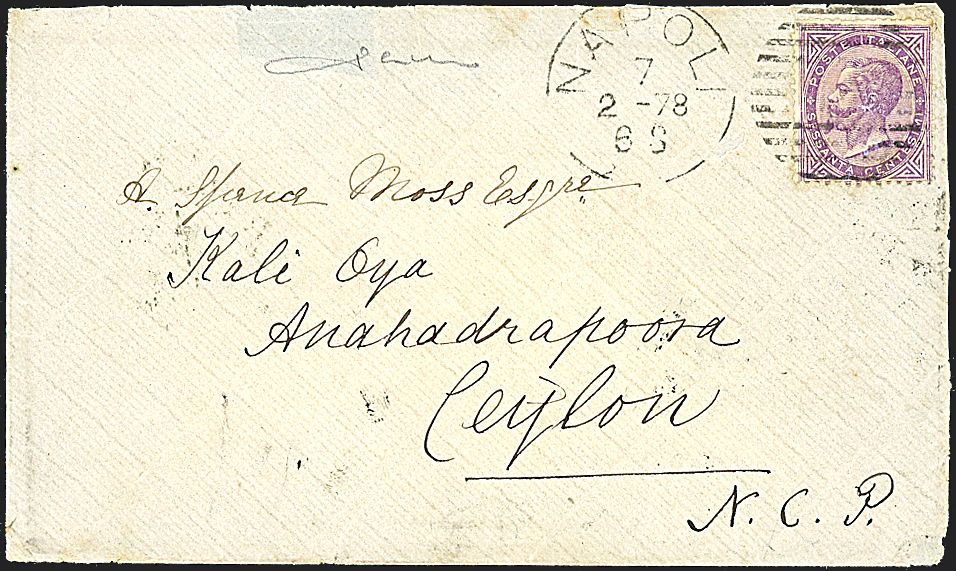 NAPOLI
7
2 -78
6 S
POSTE ITALIANE
SESSANTA CENTESIMI
A. Spand Moss Esqre
Kali Oya
Anahadrapoora
Ceylon
N. C. P.